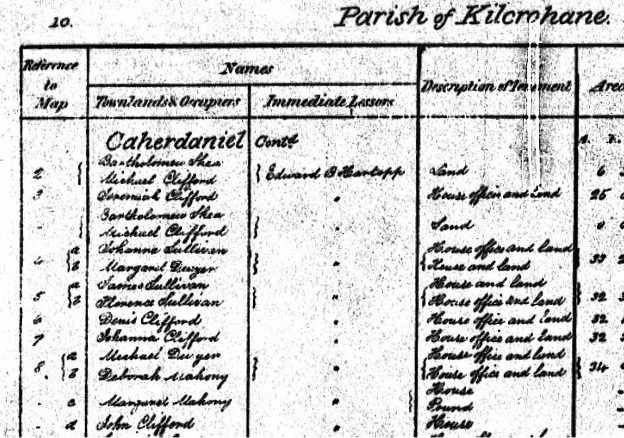 10.
Parish of Kilcrohane.
Reference to Map
Names
Townlands & Occupiers
Immediate Lessors
Description of Tenement
Area
Caherdaniel Contd
A. R.
Bartholomew Shea
2 { Michael Clifford } Edward B Hartopp Land 6
3 Jeremiah Clifford " House offices and land 25
Bartholomew Shea
- { Michael Clifford } " Land
a Johanna Sullivan House office and land
4 { b Margaret Dwyer } " { House and land } 33
a James Sullivan House and land
5 { b Florence Sullivan } " { House office and land } 32
6 Denis Clifford " House office and land 32
7 Johanna Clifford " House office and land 32
a Michael Dwyer House office and land
8 { b Deborah Mahony } " { House office and land } 34
House
- c Margaret Mahony " } Pound
- d John Clifford " House